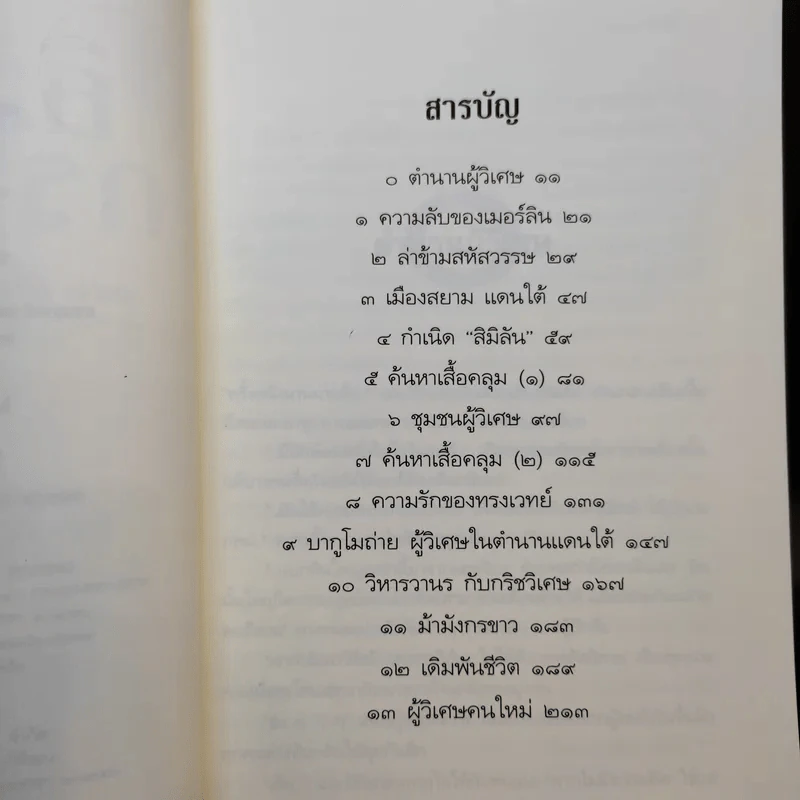 สารบัญ
๐ ตำนานผู้วิเศษ ๑๑
๑ ความลับของเมอร์ลิน ๒๑
๒ ล่าข้ามสหัสวรรษ ๒๙
๓ เมืองสยาม แดนใต้ ๔๗
๔ กำเนิด “สิมิลัน” ๕๙
๕ ค้นหาเสื้อคลุม (๑) ๘๑
๖ ชุมชนผู้วิเศษ ๙๗
๗ ค้นหาเสื้อคลุม (๒) ๑๑๕
๘ ความรักของทรงเวทย์ ๑๓๑
๙ บากูโมถ่าย ผู้วิเศษในตำนานแดนใต้ ๑๔๗
๑๐ วิหารวานร กับกริชวิเศษ ๑๖๗
๑๑ ม้ามังกรขาว ๑๘๓
๑๒ เดิมพันชีวิต ๑๘๙
๑๓ ผู้วิเศษคนใหม่ ๒๑๓